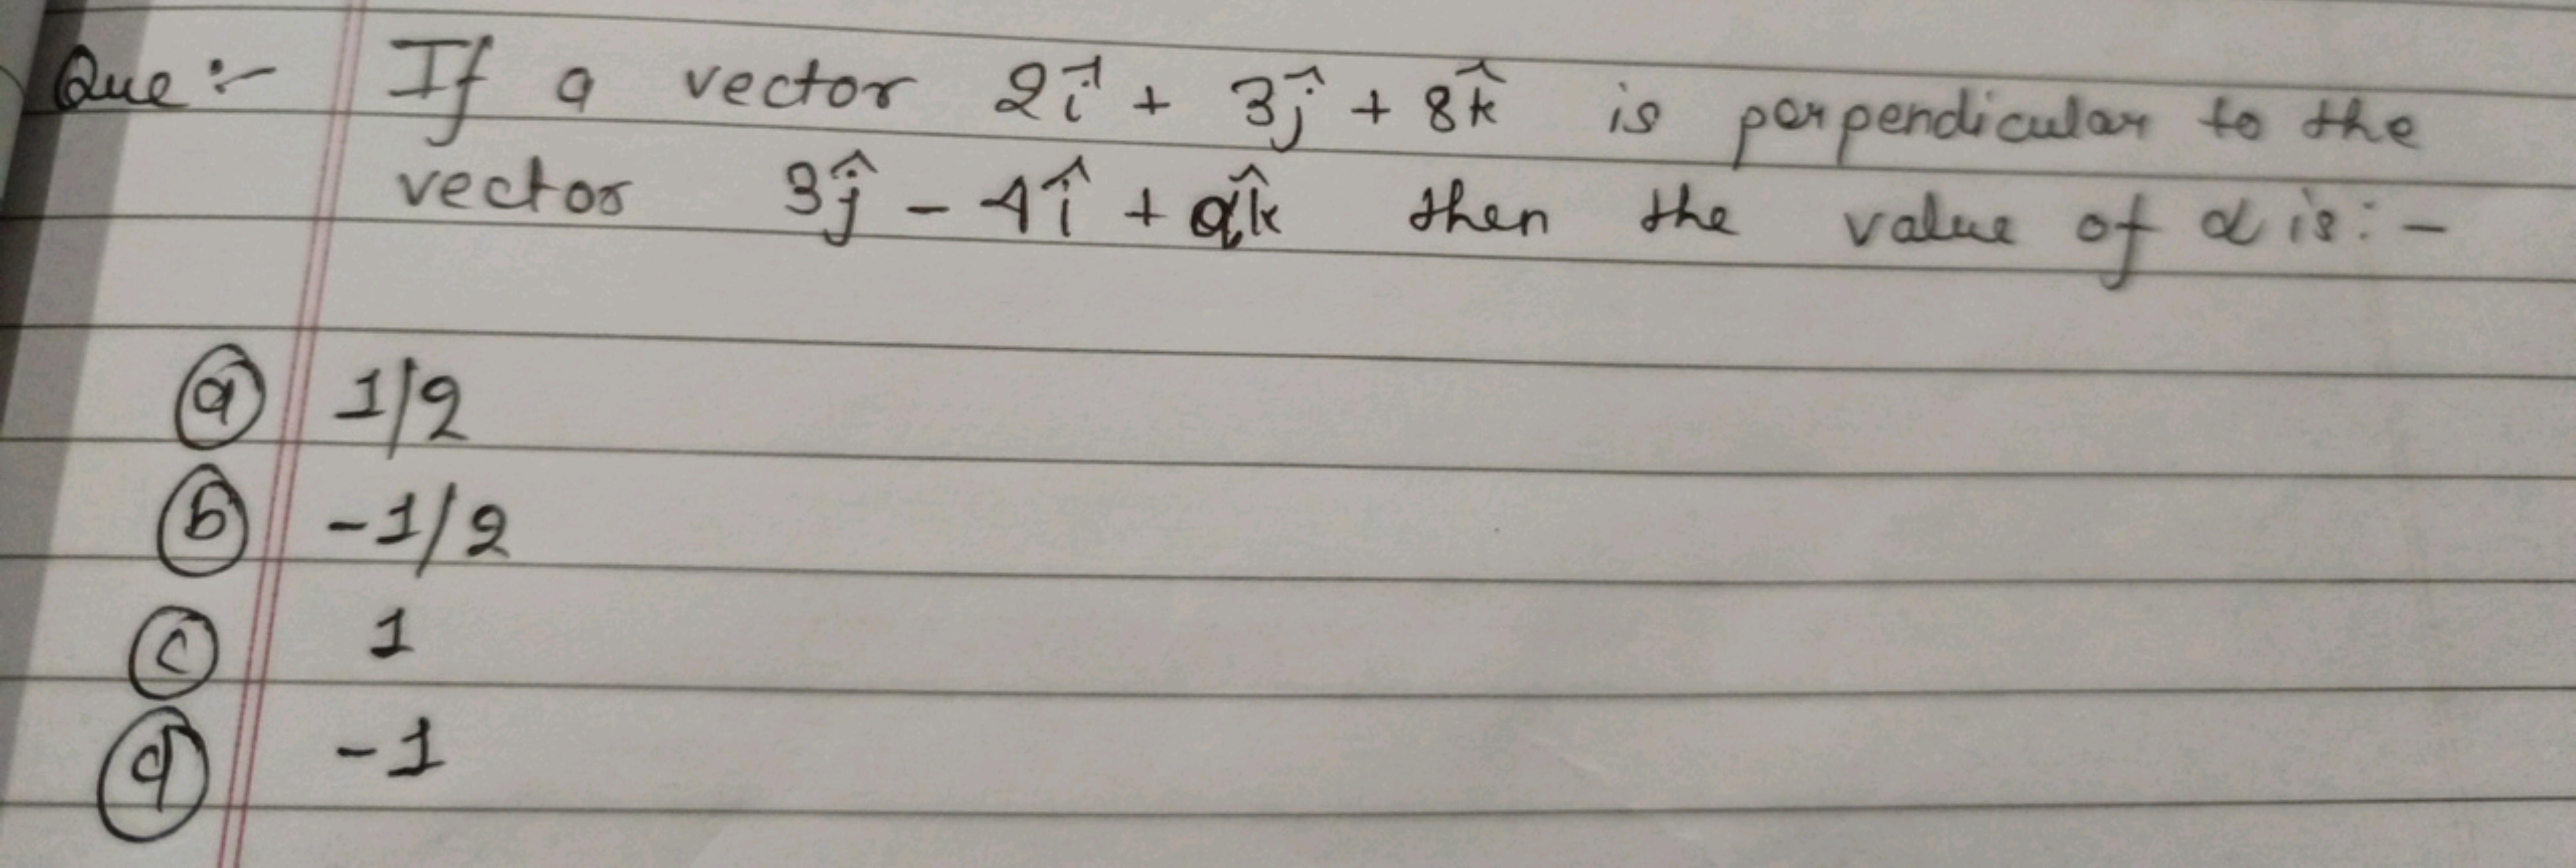 Que :- If a vector 2î + 3ĵ + 8k̂ is perpendicular to the
vector 3ĵ - 4î + αk̂ then the value of α is :-
(a) 1/2
(b) -1/2
(c) 1
(d) -1